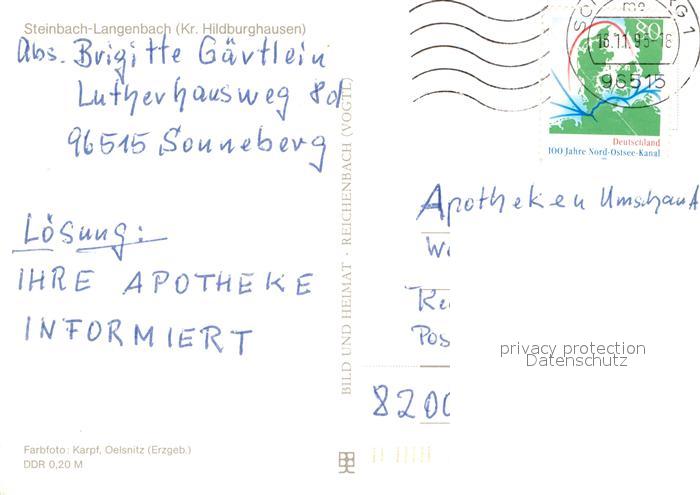 Steinbach-Langenbach (Kr. Hildburghausen)
Abs. Brigitte Gärtlein
Lutherhausweg 8d
96515 Sonneberg
Lösung:
IHRE APOTHEKE
INFORMIERT
Farbfoto: Karpf, Oelsnitz (Erzgeb.)
DDR 0,20 M
BILD UND HEIMAT · REICHENBACH (VOGTL)
80
16.11.95-18
96515
Deutschland
100 Jahre Nord-Ostsee-Kanal
Apotheken Umschau A
Pos
8200
privacy protection
Datenschutz